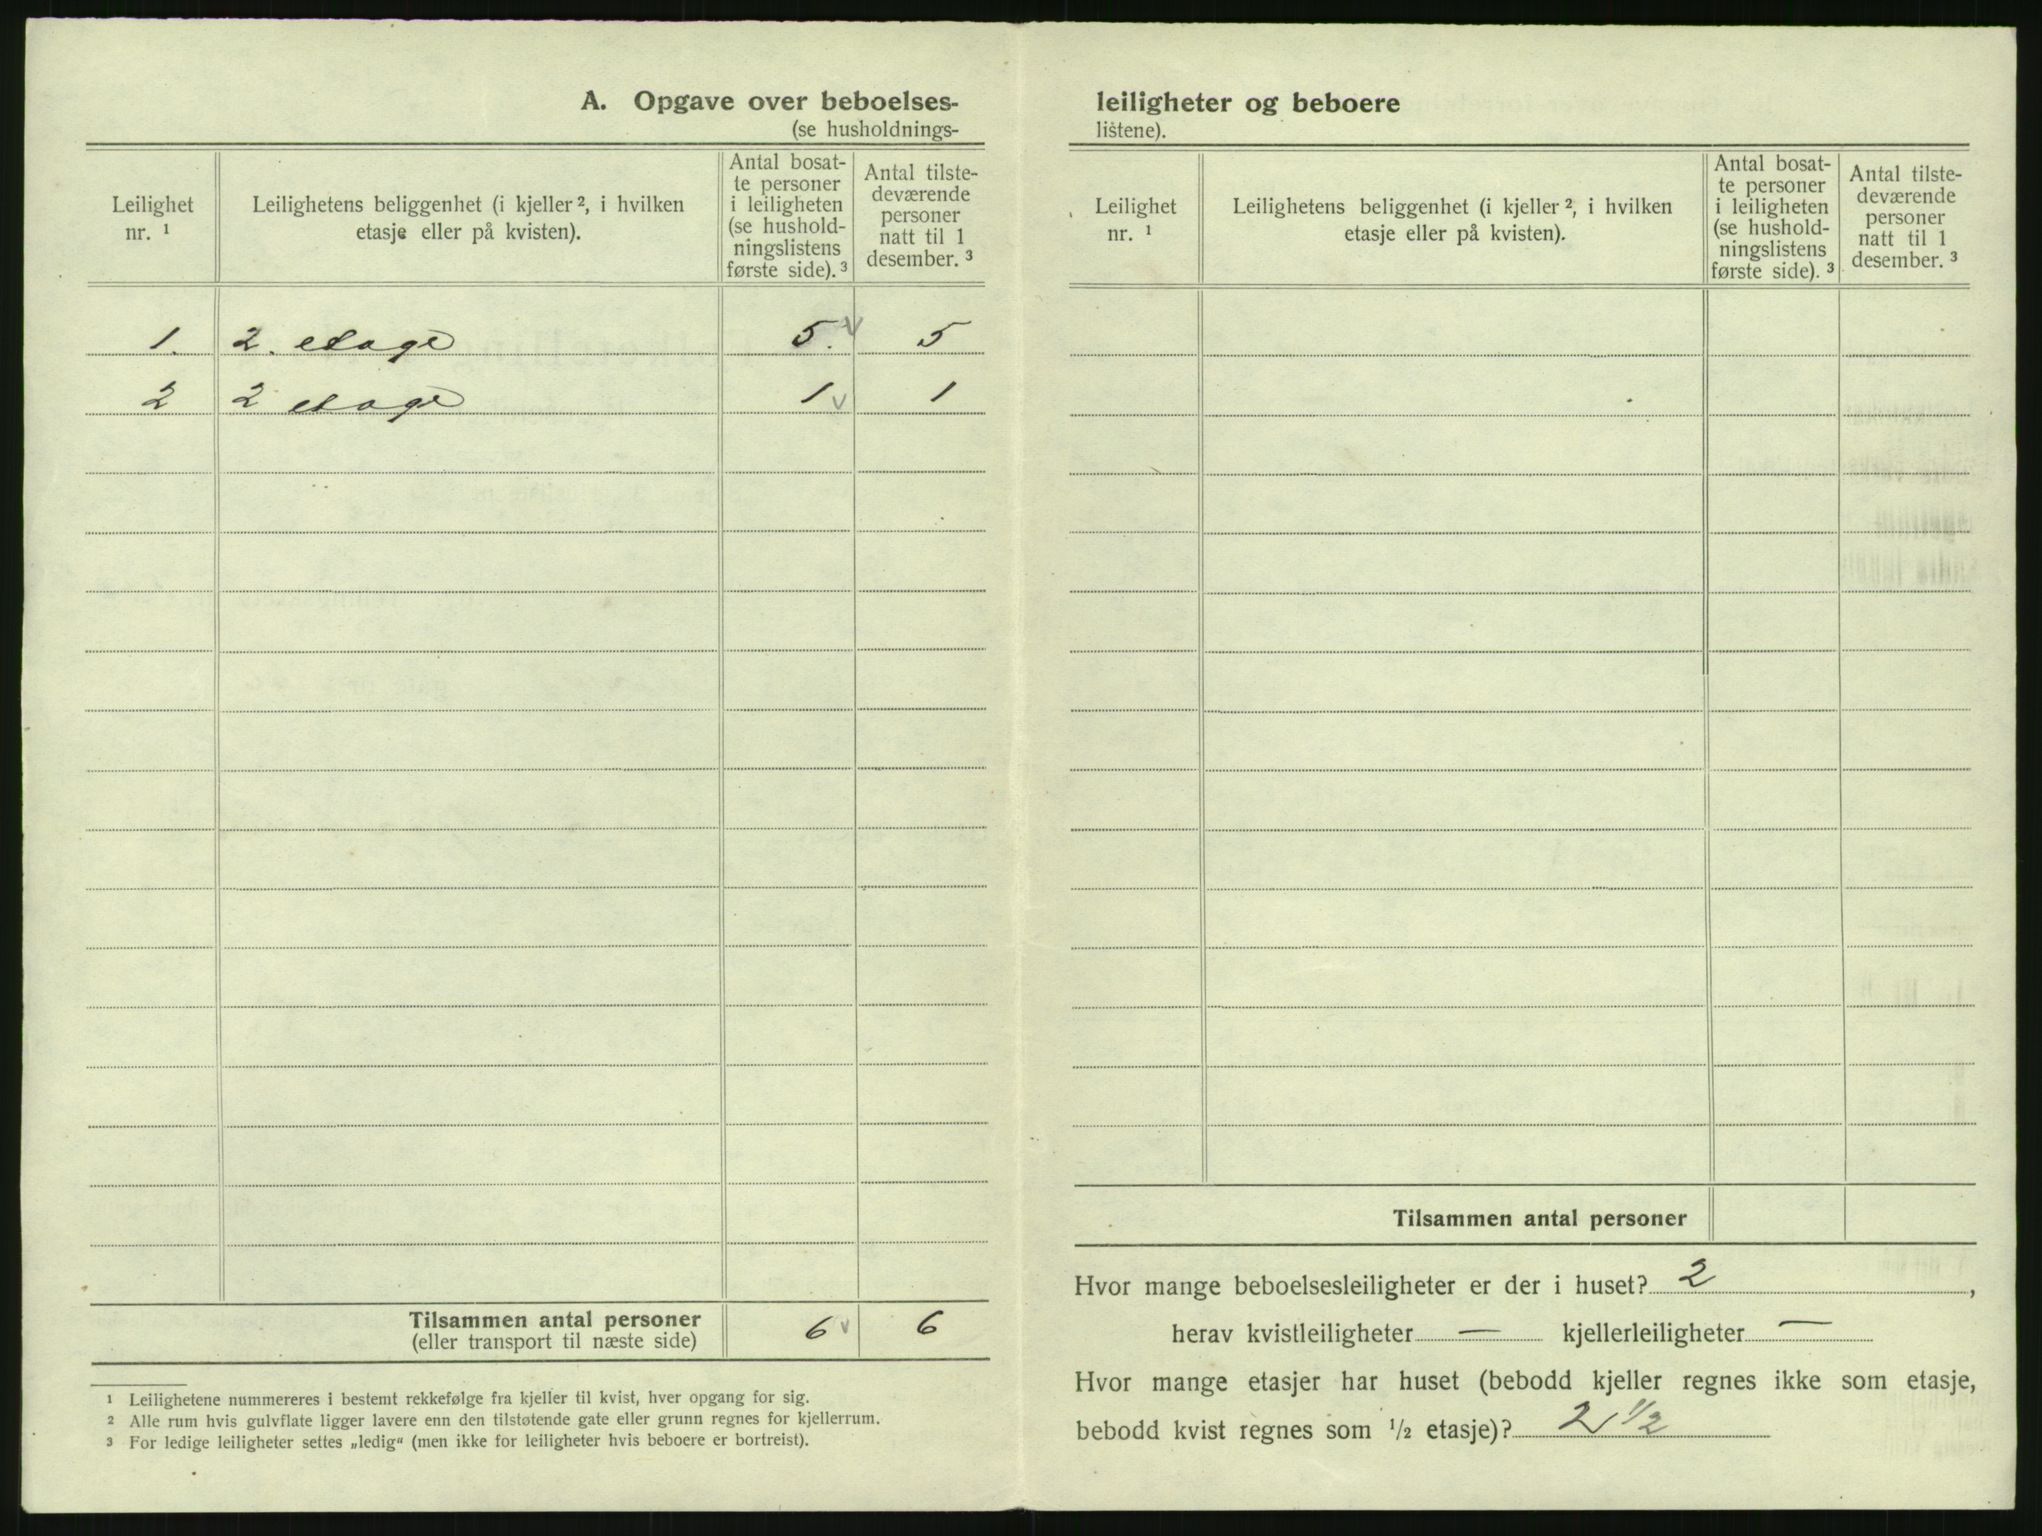 A. Opgave over beboelses-
(se husholdnings-
Leilighet nr. ¹
Leilighetens beliggenhet (i kjeller ², i hvilken etasje eller på kvisten).
Antal bosat-
te personer
i leiligheten
(se hushold-
ningslistens
første side). ³
Antal tilste-
deværende
personer
natt til 1
desember. ³
1. 2. etage 5. 5
2 2 etage 1 1
Tilsammen antal personer 6 6
(eller transport til næste side)
¹ Leilighetene nummereres i bestemt rekkefølge fra kjeller til kvist, hver opgang for sig.
² Alle rum hvis gulvflate ligger lavere enn den tilstøtende gate eller grunn regnes for kjellerrum.
³ For ledige leiligheter settes „ledig“ (men ikke for leiligheter hvis beboere er bortreist).
leiligheter og beboere
listene).
Leilighet nr. ¹
Leilighetens beliggenhet (i kjeller ², i hvilken etasje eller på kvisten).
Antal bosat-
te personer
i leiligheten
(se hushold-
ningslistens
første side). ³
Antal tilste-
deværende
personer
natt til 1
desember. ³
Tilsammen antal personer
Hvor mange beboelsesleiligheter er der i huset? 2 ,
herav kvistleiligheter — kjellerleiligheter —
Hvor mange etasjer har huset (bebodd kjeller regnes ikke som etasje,
bebodd kvist regnes som ½ etasje)? 2 1/2